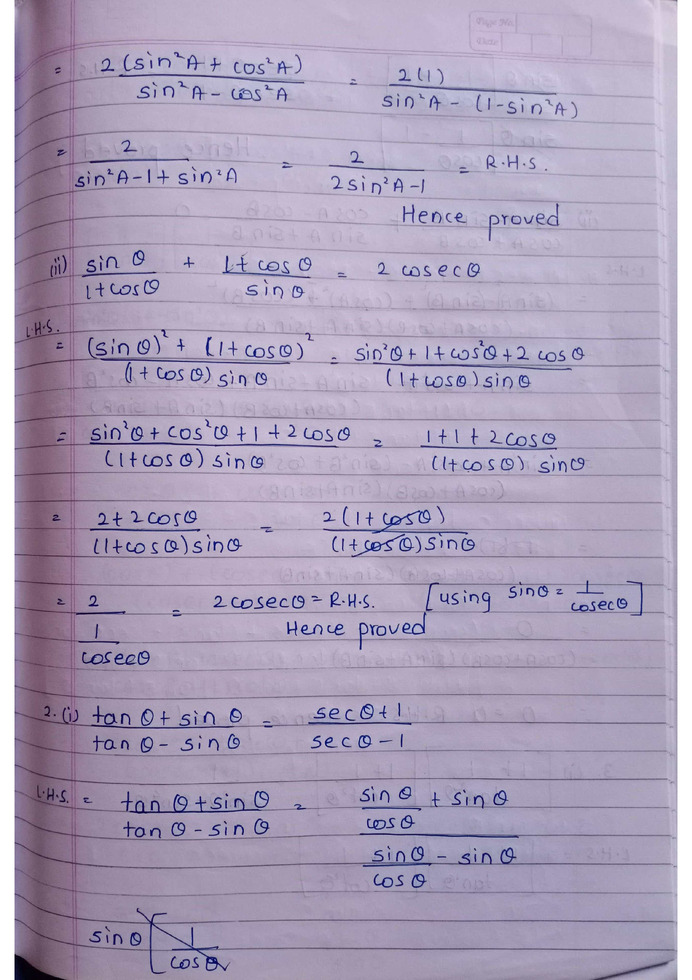 Page No.
Date
= 2(sin²A + cos²A) / sin²A - cos²A = 2(1) / sin²A - (1-sin²A)
= 2 / sin²A-1+sin²A = 2 / 2sin²A-1 = R.H.S.
Hence proved
(ii) sin θ / 1+cosθ + 1+cosθ / sinθ = 2 cosecθ
L.H.S.
= (sinθ)² + (1+cosθ)² / (1+cosθ) sinθ = sin²θ+1+cos²θ+2 cosθ / (1+cosθ) sinθ
= sin²θ+cos²θ+1+2cosθ / (1+cosθ) sinθ = 1+1+2cosθ / (1+cosθ) sinθ
= 2+2cosθ / (1+cosθ) sinθ = 2(1+cosθ) / (1+cosθ) sinθ
= 2 / 1 / cosecθ = 2cosecθ = R.H.S. [using sinθ = 1 / cosecθ]
Hence proved
2. (i) tan θ + sin θ / tan θ - sin θ = secθ+1 / secθ-1
L.H.S. = tan θ + sinθ / tan θ - sin θ = sin θ / cosθ + sin θ / sinθ / cosθ - sin θ
sinθ [ 1 / cosθ